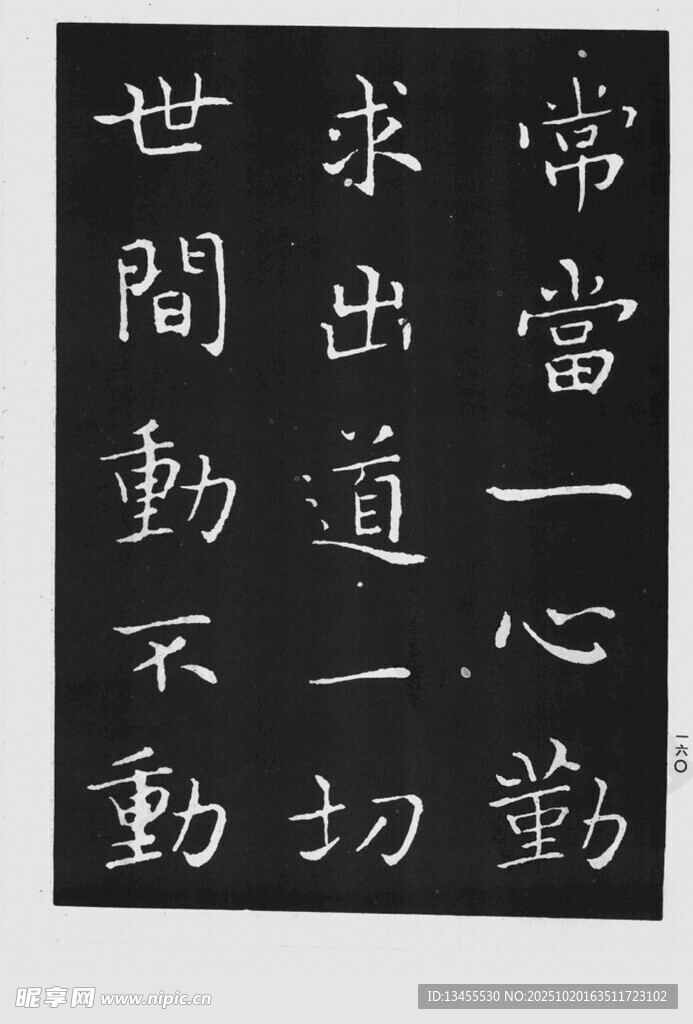 常當一心勤
求出道一切
世間動不動
一六〇
昵享网 www.nipic.cn
ID:13455530 NO:20251020163511723102